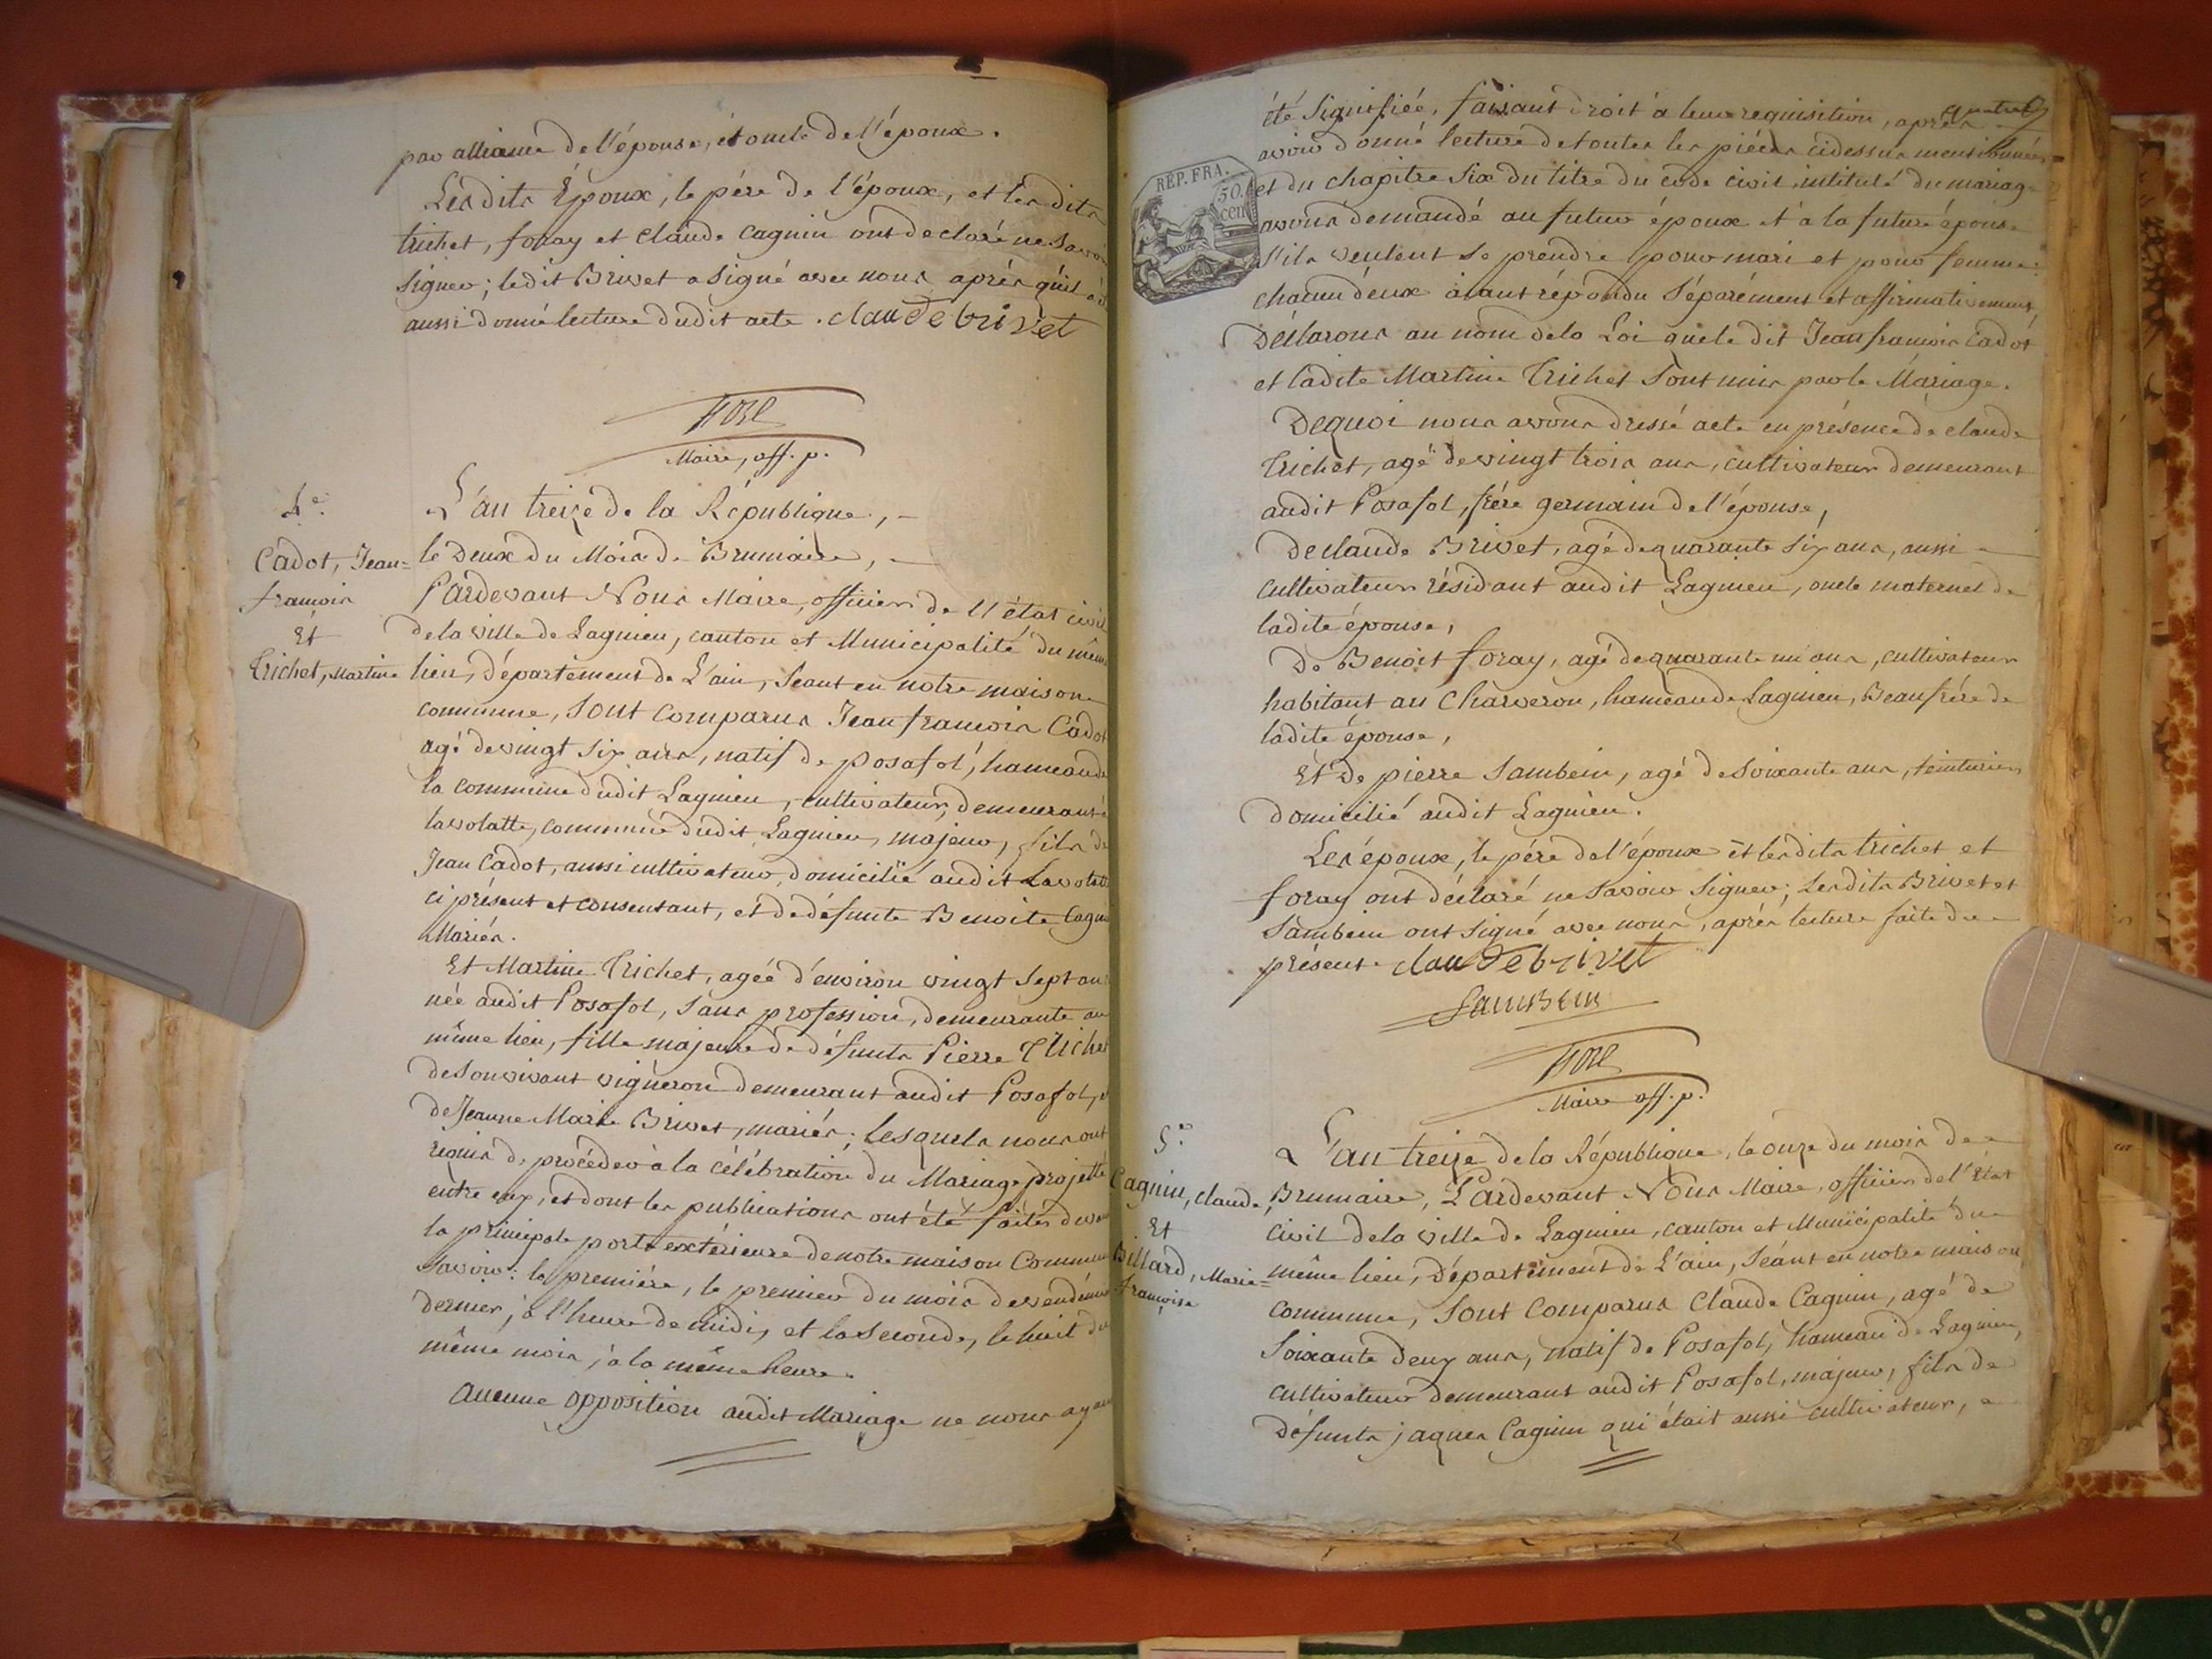 par alliance de l'épouse, et oncle de l'époux.
Lesdits Époux, le pére de l'époux, et lesdits
trichet, foray et claude cagnin ont declaré ne Savoir
Signer; ledit Brivet a Signé avec nous après qu'il a été
aussi donné lecture dudit acte. claude brivet
Maire, off. p.
4e.
Cadot, Jean=
françois
Et
Trichet, Martine
L'an treize de la République, -
le Deux du Mois de Brumaire, -
Pardevant Nous Maire, officier de l'état civil
de la ville de Lagnieu, canton et Municipalité du même
lieu, département de L'ain, Séant en notre maison
commune, Sont comparus Jean françois Cadot
agé de vingt Six ans, natif de posafol, hameau de
la commune dudit Lagnieu, cultivateur, demeurant à
lavolatte, commune dudit Lagnieu, majeur, fils de
Jean Cadot, aussi cultivateur, domicilié audit Lavolatte
ci présent et consentant, et de défunte Benoite Cagnin
Mariés.
Et Martine Trichet, agée d'environ vingt Sept ans
née audit Posafol, Sans profession, demeurante au
même lieu, fille majeure de défunts Pierre Trichet
de Son vivant vigneron demeurant audit Posafol, et
de Jeanne Marie Brivet, mariés; Lesquels nous ont
requis de procéder à la célébration du Mariage projetté
entre eux, et dont les publications ont été faites devant
la principale porte extérieure de notre maison Commune
Savoir: la première, le premier du mois de vendémiaire
dernier, à l'heure de midi, et la Seconde, le huit du
même mois, à la même heure.
Aucune opposition audit Mariage ne nous ayant
quatre
REP. FRA.
50.
cen
été Signifiée, faisant droit à leur requisition, après
avoir donné lecture de toutes les piéces cidessus mentionnées
et du chapitre Six du titre du code civil intitulé du mariage
avons demandé au futur époux et à la future épouse
S'ils veulent Se prendre pour mari et pour femme:
chacun d'eux aiant répondu Séparément et affirmativement,
Déclarons au nom de la Loi que le dit Jean françois Cadot
et ladite Martine Trichet Sont unis par le Mariage.
Dequoi nous avons dressé acte en présence de claude
Trichet, agé de vingt trois ans, cultivateur demeurant
audit Posafol, frére germain de l'épouse,
De claude Brivet, agé de quarante Six ans, aussi
cultivateur résidant audit Lagnieu, oncle maternel de
ladite épouse,
De Benoit foray, agé de quarante un ans, cultivateur
habitant au Charveron, hameau de Lagnieu, Beaufrére de
ladite épouse,
Et De pierre Sambein, agé de Soixante ans, teinturier
domicilié audit Lagnieu.
Les époux, le pére de l'époux et lesdits trichet et
foray ont déclaré ne Savoir Signer; lesdits Brivet et
Sambein ont Signé avec nous, après lecture faite du
présent. claude brivet
Sambein
Maire off. p.
5e.
Cagnin, Claude,
Et
Billard, Marie=
françoise
L'an treize de la République, le onze du mois de
Brumaire, Pardevant Nous Maire, officier de l'État
civil de la ville de Lagnieu, canton et Municipalité du
même lieu, Département de L'ain, Séant en notre maison
commune, Sont comparus Claude Cagnin, agé de
Soixante deux ans, natif de Posafol, hameau de Lagnieu,
cultivateur demeurant audit Posafol, majeur, fils de
défunts jaques Cagnin qui était aussi cultivateur,